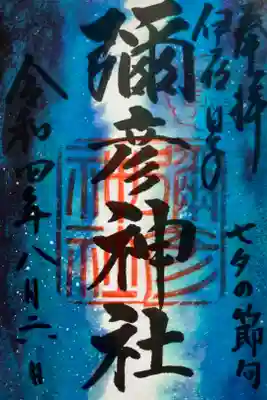 奉拝
伊夜日子
彌彦神社
七夕の節句
令和四年八月二日
彌彦
神社